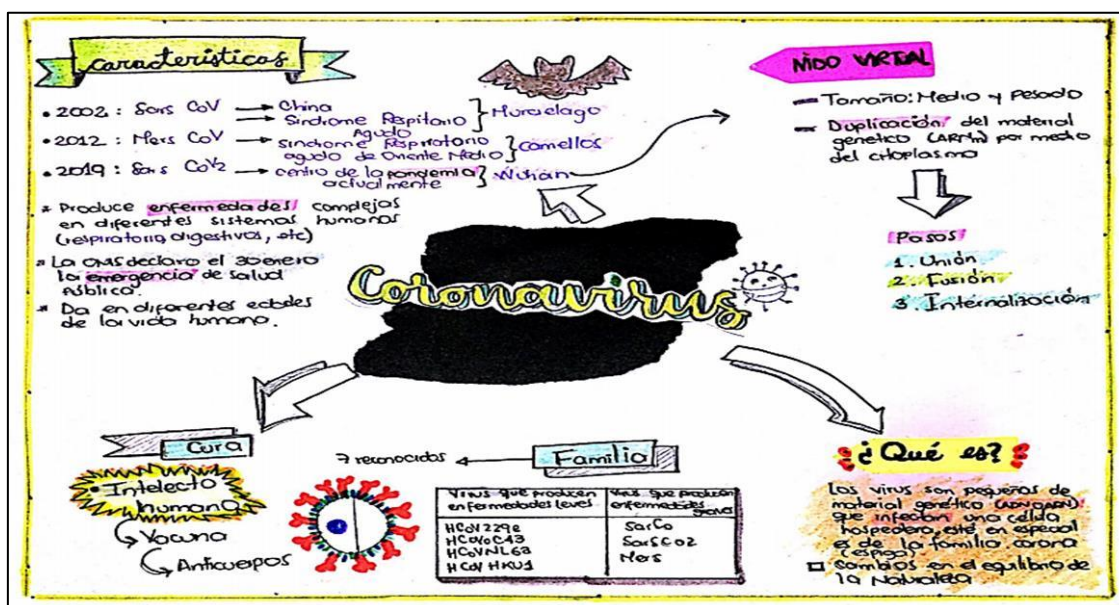 características
• 2002: Sars CoV → China
→ Sindrome Respitario Agudo } Murcielago
• 2012: Mers CoV → sindrome Respiratorio
agudo de Oriente Medio } camellos
• 2019: Sars CoV2 → centro de la pandemia
actualmente } Wuhan
* Produce enfermedades complejas
en diferentes sistemas humanos
(respiratorio, digestivos, etc)
* La OMS declaro el 30 enero
la emergencia de salud
Pública.
* Da en diferentes edades
de la vida humana.
NIDO VIRTUAL
— Tamaño: Medio y Pesado
— Duplicación del material
genetico (ARN) por medio
del citoplasma
Pasos
1. Unión
2. Fusión
3. Internalización
Coronavirus
Cura
• Intelecto
humano
Vacuna
Anticuerpos
7 reconocidos
Familia
Virus que producen
enfermedades leves
HCoV229e
HCoVoC43
HCoVNL63
HCoV HKU1
Virus que producen
enfermedades graves
SarCo
SarSCO2
Mers
¿Qué es?
Los virus son pequeñas de
material genético (ADN o ARN)
que infectan una celda
hospedera, este en especial
es de la familia corona
(espiga)
□ Cambios en el equilibrio de
la Naturaleza